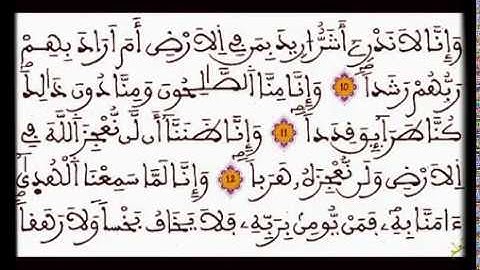 وَإِنَّا لَا نَدْرِےٓ أَشَرٌّ ا۟رِيدَ بِمَن فِے اِلَارْضِ أَمَ اَرَادَ بِهِمْ
رَبُّهُمْ رَشَداٗ 10 وَإِنَّا مِنَّا اَلصَّٰلِحُونَ وَمِنَّا دُونَ ذَٰلِكَ
كُنَّا طَرَآئِقَ قِدَداٗ 11 وَإِنَّا ظَنَنَّآ أَن لَّن نُّعْجِزَ اَللَّهَ فِے
اِلَارْضِ وَلَن نُّعْجِزَهُۥ هَرَباٗ 12 وَإِنَّا لَمَّا سَمِعْنَا اَلْهُد۪ىٰٓ
ءَامَنَّا بِهِۦ فَمَنْ يُّومِنۢ بِرَبِّهِۦ فَلَا يَخَافُ بَخْساٗ وَلَا رَهَقاٗ